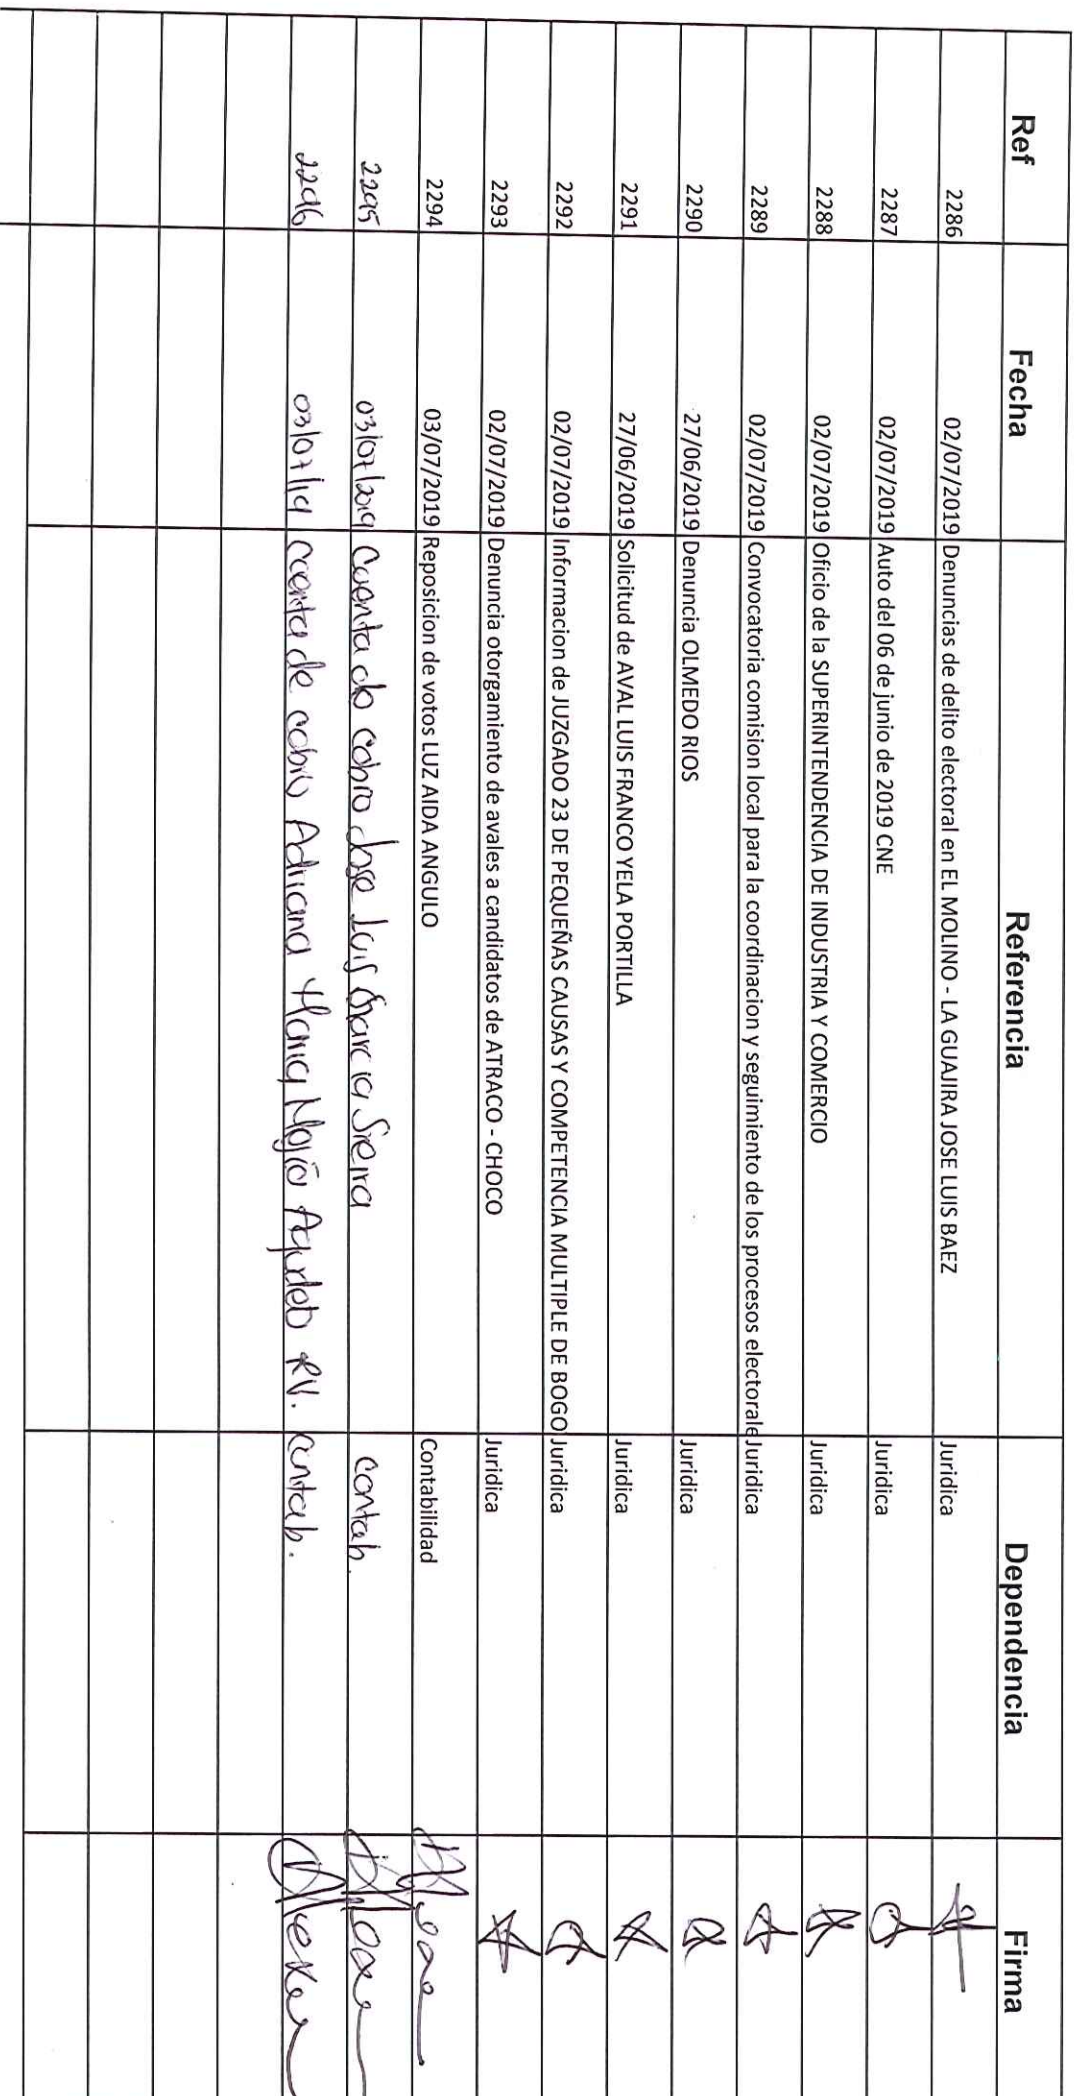 Ref Fecha Referencia Dependencia Firma
2286 02/07/2019 Denuncias de delito electoral en EL MOLINO - LA GUAJIRA JOSE LUIS BAEZ Juridica
2287 02/07/2019 Auto del 06 de junio de 2019 CNE Juridica
2288 02/07/2019 Oficio de la SUPERINTENDENCIA DE INDUSTRIA Y COMERCIO Juridica
2289 02/07/2019 Convocatoria comision local para la coordinacion y seguimiento de los procesos electorale Juridica
2290 27/06/2019 Denuncia OLMEDO RIOS Juridica
2291 27/06/2019 Solicitud de AVAL LUIS FRANCO YELA PORTILLA Juridica
2292 02/07/2019 Informacion de JUZGADO 23 DE PEQUEÑAS CAUSAS Y COMPETENCIA MULTIPLE DE BOGO Juridica
2293 02/07/2019 Denuncia otorgamiento de avales a candidatos de ATRACO - CHOCO Juridica
2294 03/07/2019 Reposicion de votos LUZ AIDA ANGULO Contabilidad
2295 03/07/2019 Cuenta de cobro Jose Luis Garcia Sierra Contab.
2296 03/07/19 Cuenta de cobro Adriana Maria Mejía Agudelo RV. Contab.